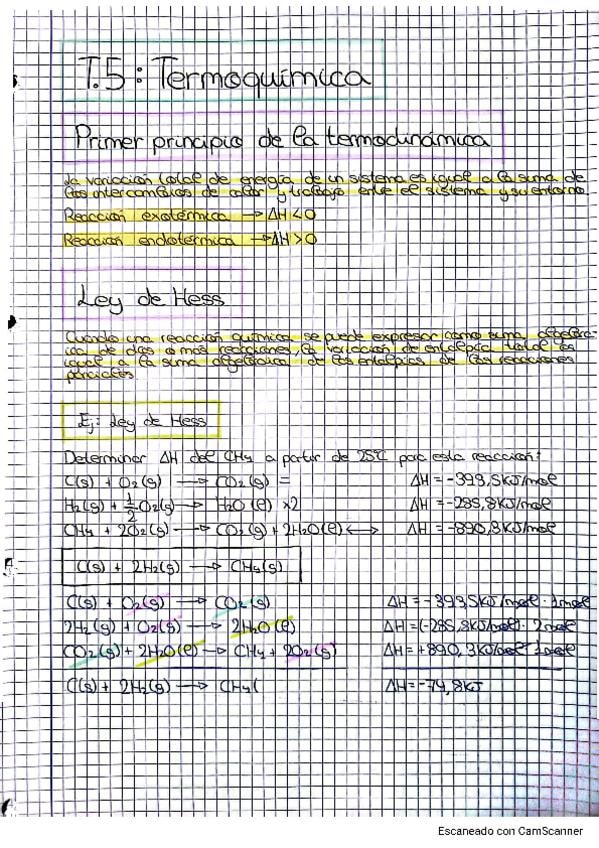 T.5: Termoquímica
Primer principio de la termodinámica
La variación total de energía de un sistema es igual a la suma de
los intercambios de calor y trabajo entre el sistema y su entorno
Reacción exotérmica → ΔH < 0
Reacción endotérmica → ΔH > 0
Ley de Hess
Cuando una reacción química se puede expresar como suma algebra-
ica de dos o más reacciones, la variación de entalpía total es
igual a la suma algebraica de las entalpías de las reacciones
parciales
Ej: Ley de Hess
Determinar ΔH del CH4 a partir de 25ºC para esta reacción:
C(s) + O2(g) → CO2(g) = ΔH = -393,5KJ/mol
H2(g) + 1/2 O2(g) → H2O(l) x2 ΔH = -285,8KJ/mol
CH4 + 2O2(g) → CO2(g) + 2H2O(l) ↔ ΔH = -890,3KJ/mol
C(s) + 2H2(g) → CH4(g)
C(s) + O2(g) → CO2(g) ΔH = -393,5KJ/mol · 1mol
2H2(g) + O2(g) → 2H2O(l) ΔH = (-285,8KJ/mol) · 2mol
CO2(g) + 2H2O(l) → CH4 + 2O2(g) ΔH = +890,3KJ/mol · 1mol
C(s) + 2H2(g) → CH4( ΔH = -74,8KJ
Escaneado con CamScanner